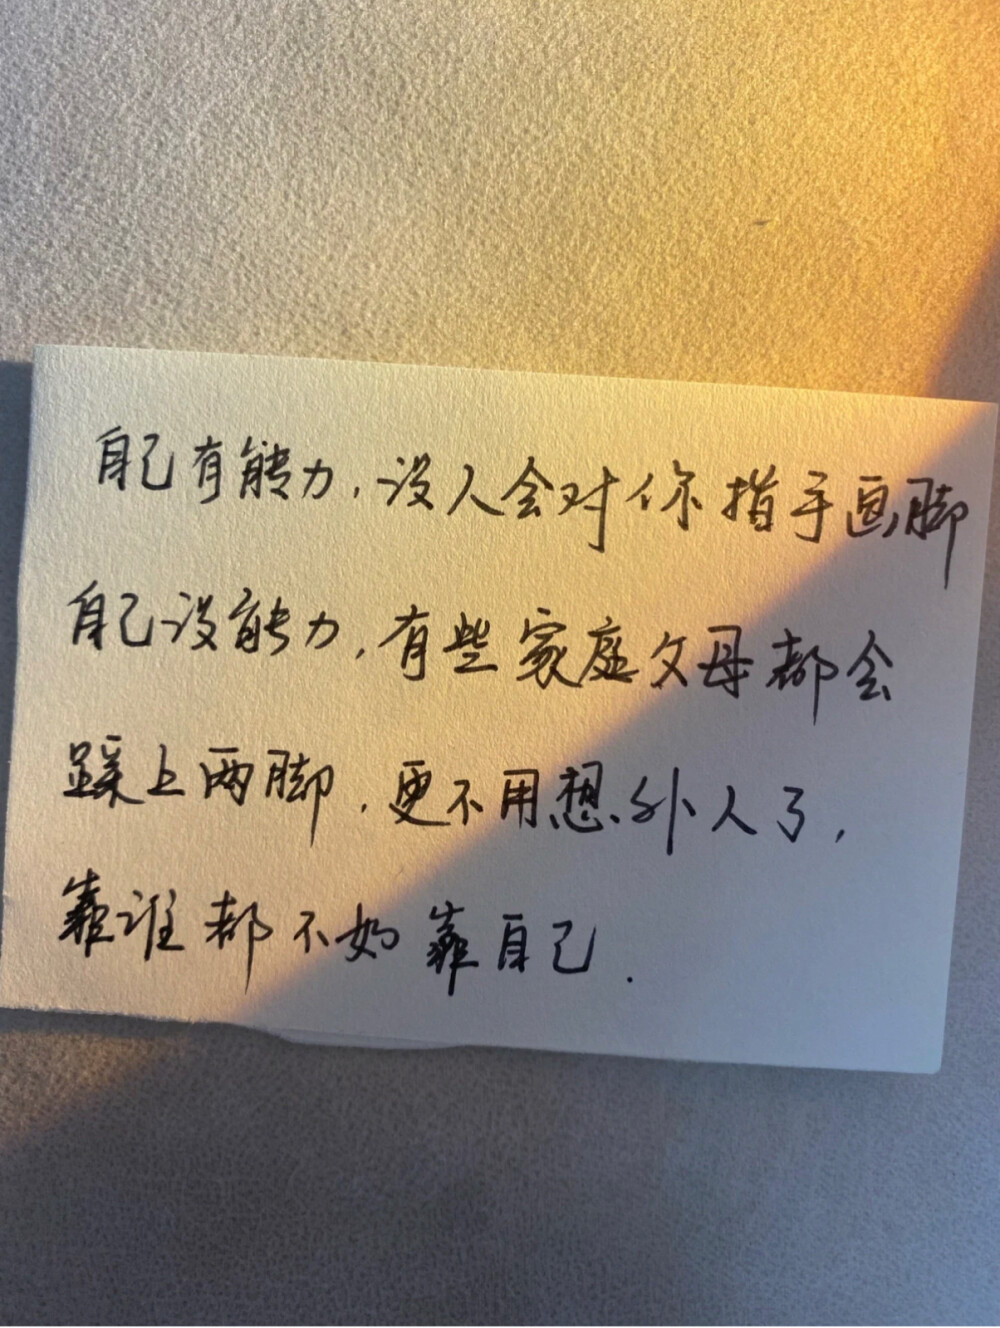 自己有能力,没人会对你指手画脚
自己没能力,有些家庭父母都会
踩上两脚,更不用想外人了,
靠谁都不如靠自己.